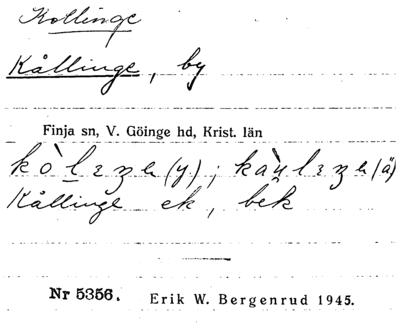 Kollinge
Kållinge, by
Finja sn, V. Göinge hd, Krist. län
(y); (ä)
Kållinge ek, bek
Nr 5356. Erik W. Bergenrud 1945.